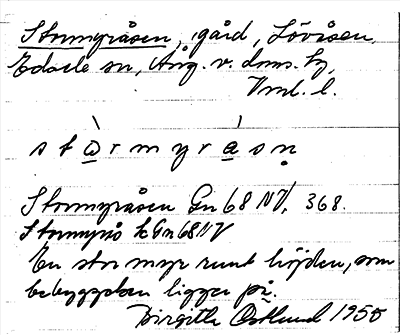 Stormyråsen, gård, Lövåsen,
Edsele sn, Ång. v. doms. tg,
Vml. l.
stω̱rmyra̱sn̥
Stormyråsen Gn 68 NV, 368.
Stormyrås kGn 68 NV
En stor myr runt höjden, som
bebyggelsen ligger på.
Birgitta Östlund 1955